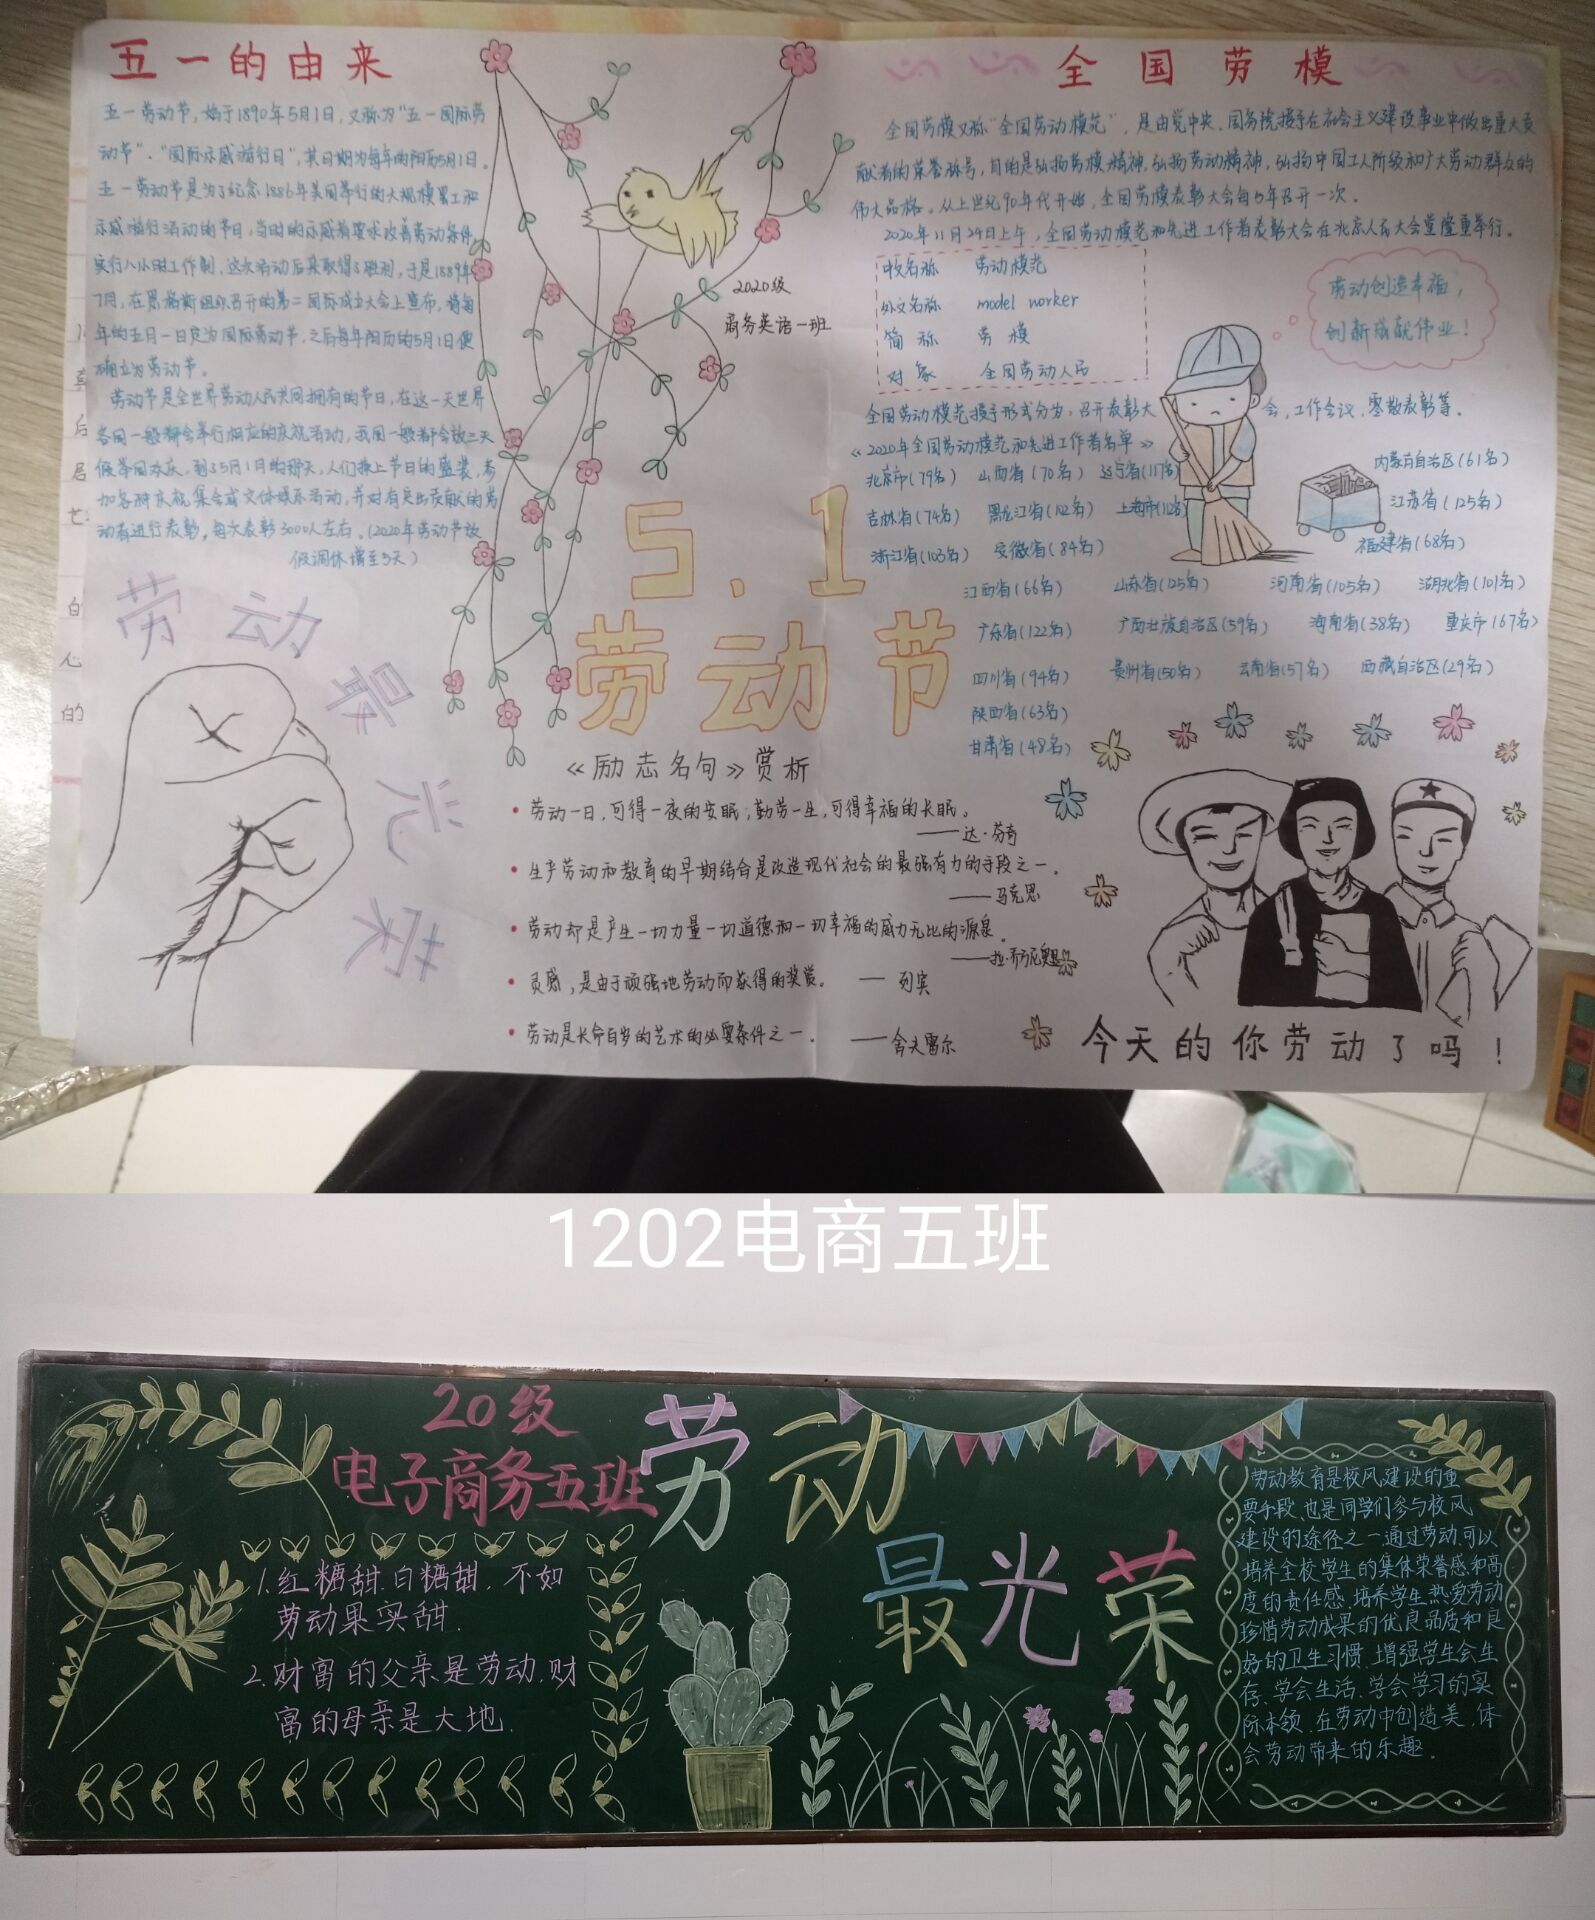 五一的由来
五一劳动节,始于1890年5月1日,又称为“五一国际劳
动节”、“国际示威游行日”,其日期为每年的阳历5月1日。
五一劳动节是为了纪念1886年美国举行的大规模罢工和
示威游行活动的节日,当时的示威者要求改善劳动条件
实行八小时工作制,这次活动后来取得了胜利,于是1889年
7月,在恩格斯组织召开的第二国际成立大会上宣布,将每
年的五月一日定为国际劳动节.之后每年阳历的5月1日便
确立为劳动节。
劳动节是全世界劳动人民共同拥有的节日,在这一天世界
各国一般都会举行相应的庆祝活动,我国一般都会放三天
假举国欢庆.到了5月1月的那天,人们换上节日的盛装,参
加各种庆祝集会或文体娱乐活动,并对有突出贡献的劳
动者进行表彰,每次表彰3000人左右.(2020年劳动节放
假调休增至5天)
劳动最光荣
2020级
商务英语一班
5.1
劳动节
《励志名句》赏析
劳动一日,可得一夜的安眠;勤劳一生,可得幸福的长眠。
——达·芬奇
生产劳动和教育的早期结合是改造现代社会的最强有力的手段之一.
——马克思
劳动却是产生一切力量一切道德和一切幸福的威力无比的源泉.
——拉·乔乃尼奥里
灵感,是由于顽强地劳动而获得的奖赏。 — 列宾
劳动是长命百岁的艺术的必要条件之一. ——舍夫雷尔
全国劳模
全国劳模又称“全国劳动模范”,是由党中央、国务院授予在社会主义建设事业中做出重大贡
献者的荣誉称号,目的是弘扬劳模精神,弘扬劳动精神,弘扬中国工人阶级和广大劳动群众的
伟大品格。从上世纪90年代开始,全国劳模表彰大会每5年召开一次.
2020年11月24日上午,全国劳动模范和先进工作者表彰大会在北京人民大会堂隆重举行。
中文名称 劳动模范
外文名称 model worker
简称 劳模
对象 全国劳动人民
劳动创造幸福,
创新成就伟业!
全国劳动模范授予形式分为:召开表彰大会,工作会议、零散表彰等.
《2020年全国劳动模范和先进工作者名单》
北京市(79名) 山西省(70名) 辽宁省(117名) 内蒙古自治区(61名)
吉林省(74名) 黑龙江省(102名) 上海市(112名) 江苏省(125名)
浙江省(103名) 安徽省(84名) 福建省(68名)
江西省(66名) 山东省(125名) 河南省(105名) 湖北省(101名)
广东省(122名) 广西壮族自治区(59名) 海南省(38名) 重庆市(67名)
四川省(94名) 贵州省(50名) 云南省(57名) 西藏自治区(29名)
陕西省(63名)
甘肃省(48名)
今天的你劳动了吗!
1202电商五班
20级
电子商务五班
劳动
最光荣
1.红糖甜.白糖甜.不如
劳动果实甜.
2.财富的父亲是劳动.财
富的母亲是大地.
劳动教育是校风建设的重
要手段.也是同学们参与校风
建设的途径之一.通过劳动.可以
培养全校学生的集体荣誉感和高
度的责任感.培养学生热爱劳动
珍惜劳动成果的优良品质和良
好的卫生习惯.增强学生会生
存、学会生活.学会学习的实
际本领.在劳动中创造美.体
会劳动带来的乐趣.